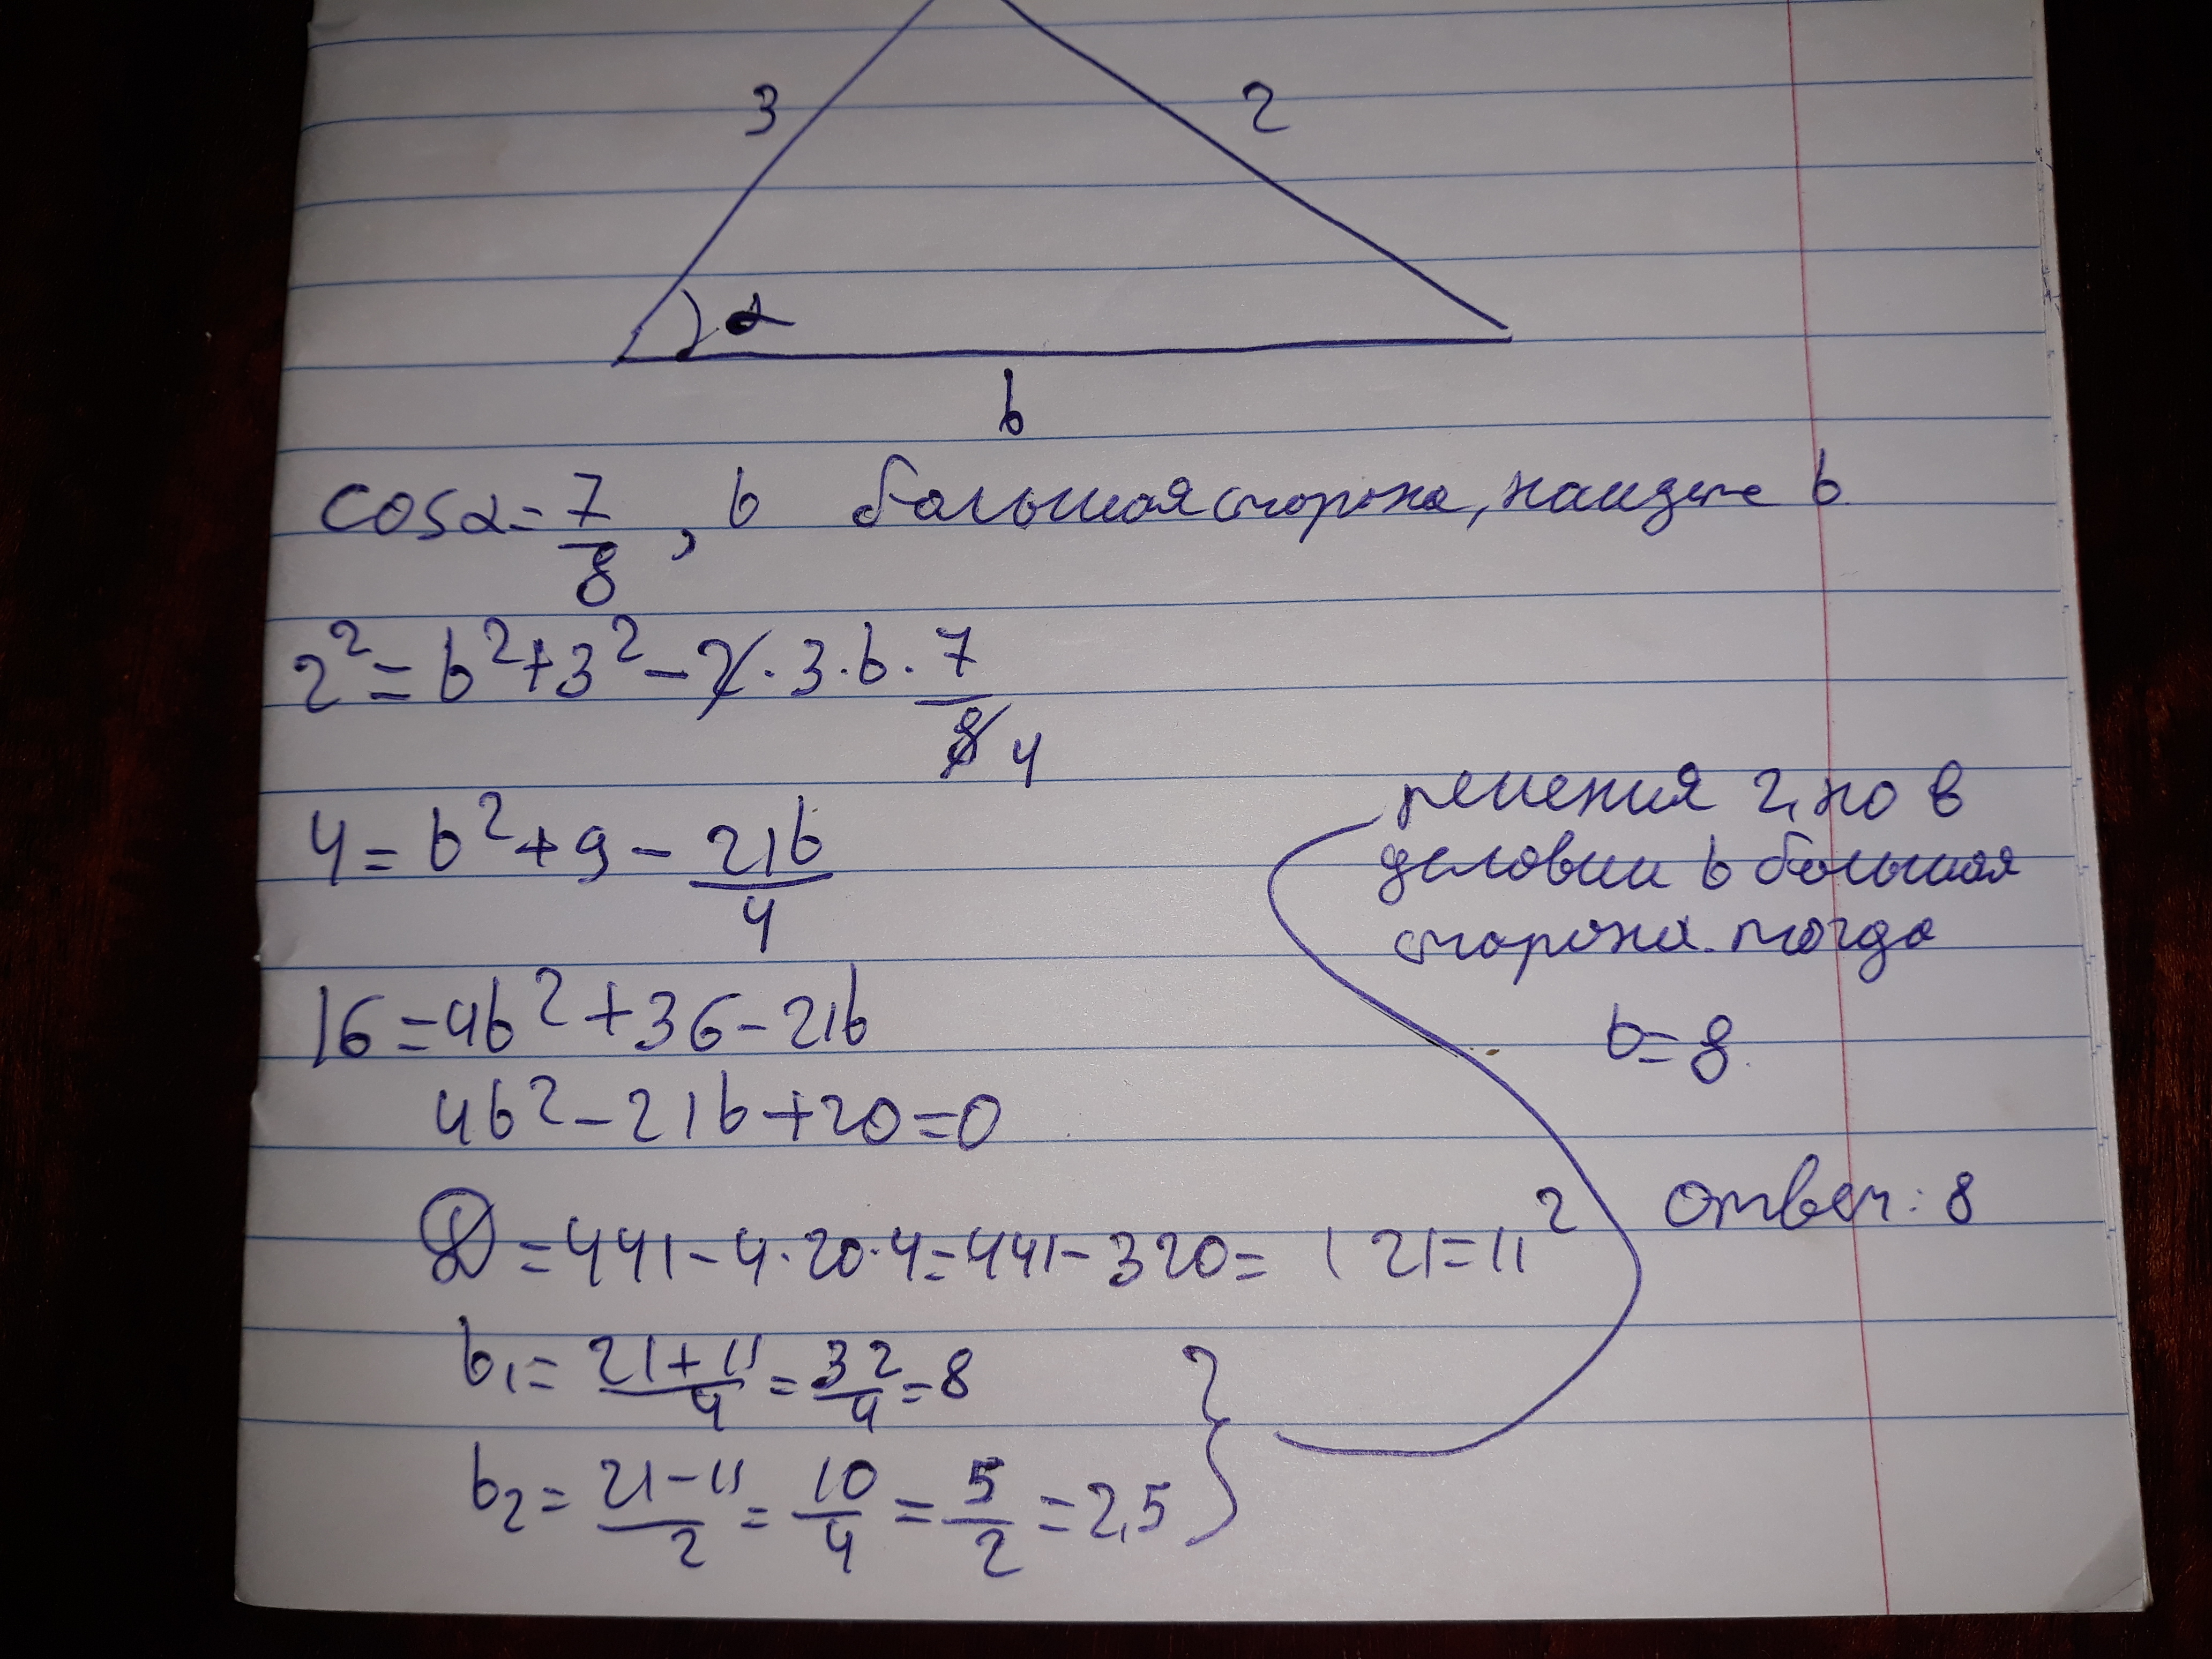 3
2
α
b
cos α = 7/8, b большая сторона, найдите b.
2² = b² + 3² - 2 · 3 · b · 7/8 4
4 = b² + 9 - 21b/4
16 = 4b² + 36 - 21b
4b² - 21b + 20 = 0
D = 441 - 4 · 20 · 4 = 441 - 320 = 121 = 11²
b₁ = (21 + 11)/4 = 32/4 = 8
b₂ = (21 - 11)/2 = 10/4 = 5/2 = 2,5
решения 2, но в
условии b большая
сторона. тогда
b = 8.
ответ: 8